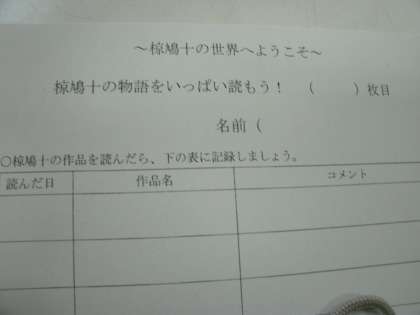 ～椋鳩十の世界へようこそ～
椋鳩十の物語をいっぱい読もう！　（　　　）枚目
名前（
○椋鳩十の作品を読んだら、下の表に記録しましょう。
読んだ日　作品名　コメント